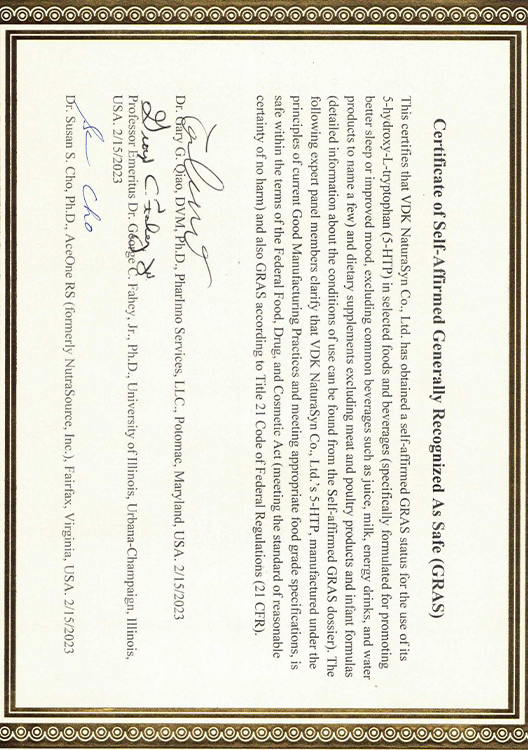 Certificate of Self-Affirmed Generally Recognized As Safe (GRAS)
This certifies that VDK NaturaSyn Co., Ltd. has obtained a self-affirmed GRAS status for the use of its
5-hydroxy-L-tryptophan (5-HTP) in selected foods and beverages (specifically formulated for promoting
better sleep or improved mood, excluding common beverages such as juice, milk, energy drinks, and water
products to name a few) and dietary supplements excluding meat and poultry products and infant formulas
(detailed information about the conditions of use can be found from the Self-affirmed GRAS dossier). The
following expert panel members clarify that VDK NaturaSyn Co., Ltd.'s 5-HTP, manufactured under the
principles of current Good Manufacturing Practices and meeting appropriate food grade specifications, is
safe within the terms of the Federal Food, Drug, and Cosmetic Act (meeting the standard of reasonable
certainty of no harm) and also GRAS according to Title 21 Code of Federal Regulations (21 CFR).
Dr. Gary G. Qiao, DVM, Ph.D., PharInno Services, LLC., Potomac, Maryland, USA. 2/15/2023
George C. Fahey Jr
Professor Emeritus Dr. George C. Fahey, Jr., Ph.D., University of Illinois, Urbana-Champaign, Illinois,
USA. 2/15/2023
Cho
Dr. Susan S. Cho, Ph.D., AceOne RS (formerly NutraSource, Inc.), Fairfax, Virginia, USA. 2/15/2023